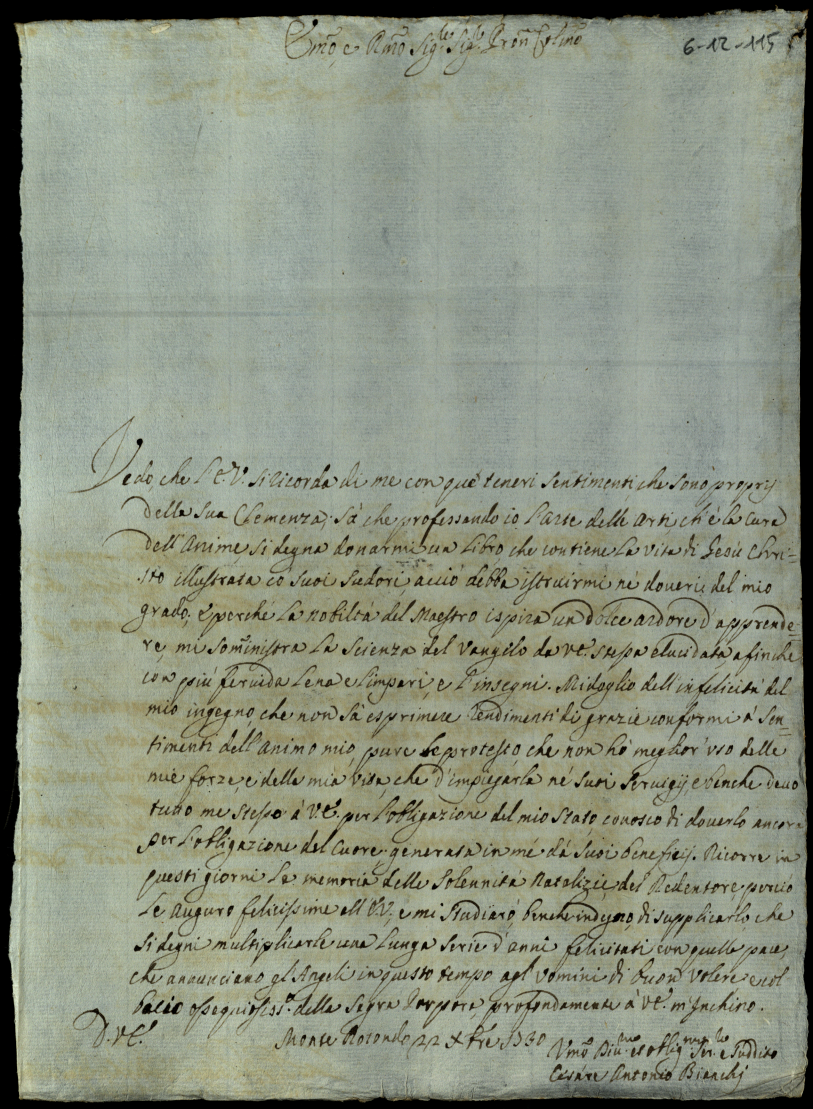 Emo, e Rmo Sig.re Sig.re Pron Colmo
6-12-115
Vedo, che l'E.V. si ricorda di me con què teneri sentimenti che sono proprij
della sua Clemenza; Sà che professando io l'Arte delle Arti ch'è la Cura
dell'Anime si degna donarmi un Libro che contiene la Vita di Gesù Chri=
sto illustrata co' suoi sudori, acciò debba istruirmi né doveri del mio
grado; e perché la nobiltà del Maestro ispira un dolce ardore d'apprende=
re, mi somministra la Scienza del Vangelo da V.E. stessa elucidata, afinche
con più fervida Lena e l'impari, e l'insegni. Mi doglio dell'infelicità del
mio ingegno, che non sà esprimere rendimenti di grazie conformi a' sen=
timenti dell'Animo mio, pure le protesto, che non hò meglior uso delle
mie forze, e della mia vita, che d'impiegarla né suoi servigij, e benche devo
tutto me stesso à V.E. per l'obligazione del mio stato, conosco di doverlo ancora
per l'obligazione del Cuore, generata in mé dà suoi beneficij. Ricorre in
questi giorni la memoria della Solennità Natalizie del Redentore perciò
Le Auguro felicissime all'E.V., e mi studiarò, benche indegno, di supplicarlo, che
si degni multiplicarle una lunga serie d'anni felicitati con quella pace,
che annunciano gl'Angeli in questo tempo agl'Uomini di buon Volere e col
bacio ossequiosiss.o della Sagra Porpora profondamente à V.E. m'Inchino.
D. V.E.
Monte Rotondo 22 Xbre 1730
Umo Div.mo et oblig.mo Ser.e e Suddito
Cesare Antonio Bianchi